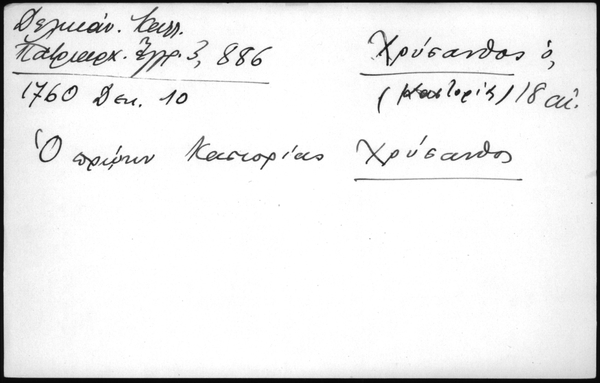 Δελικάν. Καλλ.
Πατριαρχ. Έγγρ. 3, 886
1760 Δεκ. 10
Χρύσανθος ὁ,
(Καστορίας) 18 αἰ.
Ὁ πρώην Καστορίας Χρύσανθος